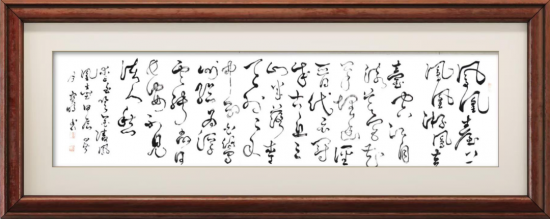 鳳凰臺上
鳳凰遊鳳去
臺空江自
流吳宮花
草埋幽徑
晉代衣冠
成古丘三
山半落青
天外二水
中分白鷺
洲總為浮
雲能蔽日
長安不見
使人愁
李白登金陵鳳
凰臺甲辰